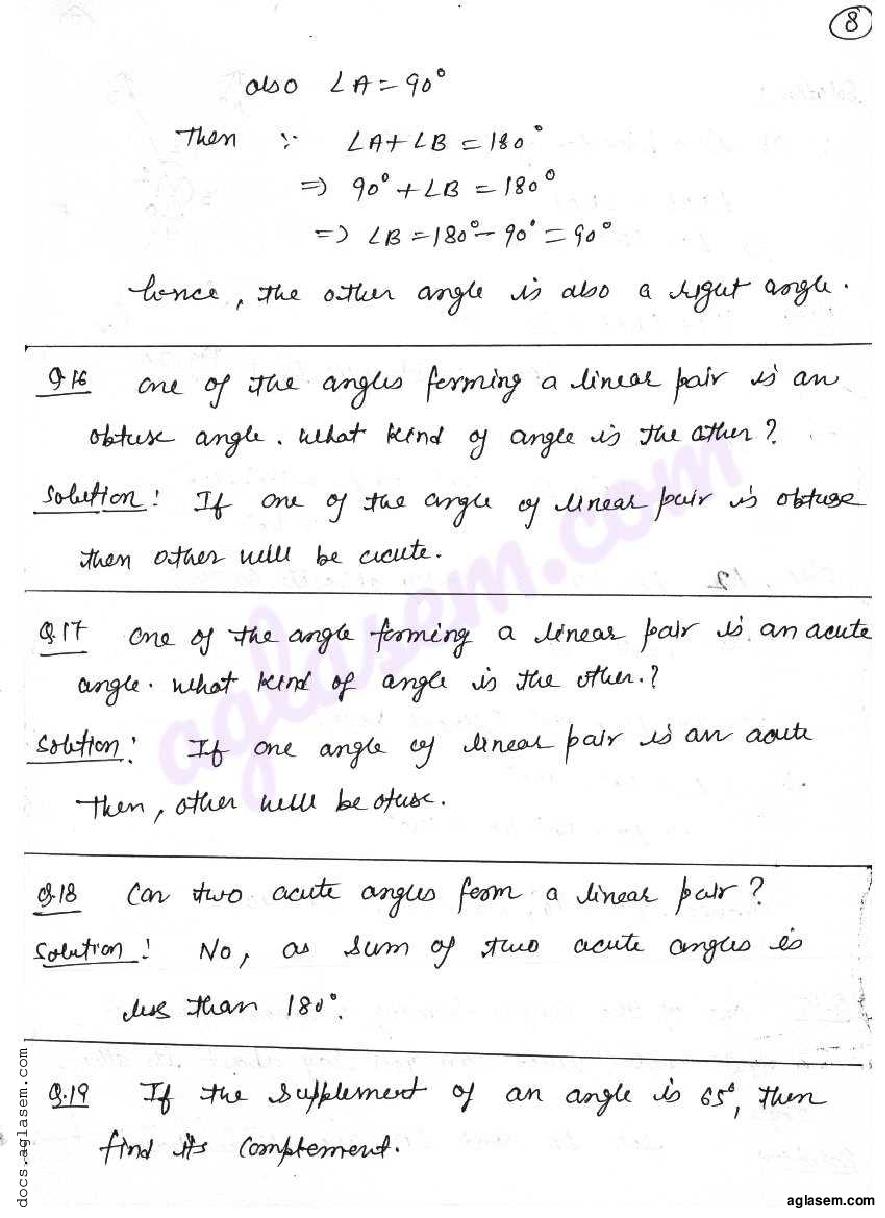 8
also ∠A = 90°
Then ∵ ∠A + ∠B = 180°
⇒ 90° + ∠B = 180°
⇒ ∠B = 180° - 90° = 90°
hence, the other angle is also a right angle.
Q.16 One of the angles forming a linear pair is an
obtuse angle. What kind of angle is the other?
Solution: If one of the angle of linear pair is obtuse
then other will be acute.
12
Q.17 One of the angle forming a linear pair is an acute
angle. What kind of angle is the other.?
Solution: If one angle of linear pair is an acute
Then, other will be otuse.
Q.18 Can two acute angles form a linear pair?
Solution: No, as sum of two acute angles is
less than 180°.
Q.19 If the supplement of an angle is 65°, then
find its complement.
aglasem.com
docs.aglasem.com
aglasem.com